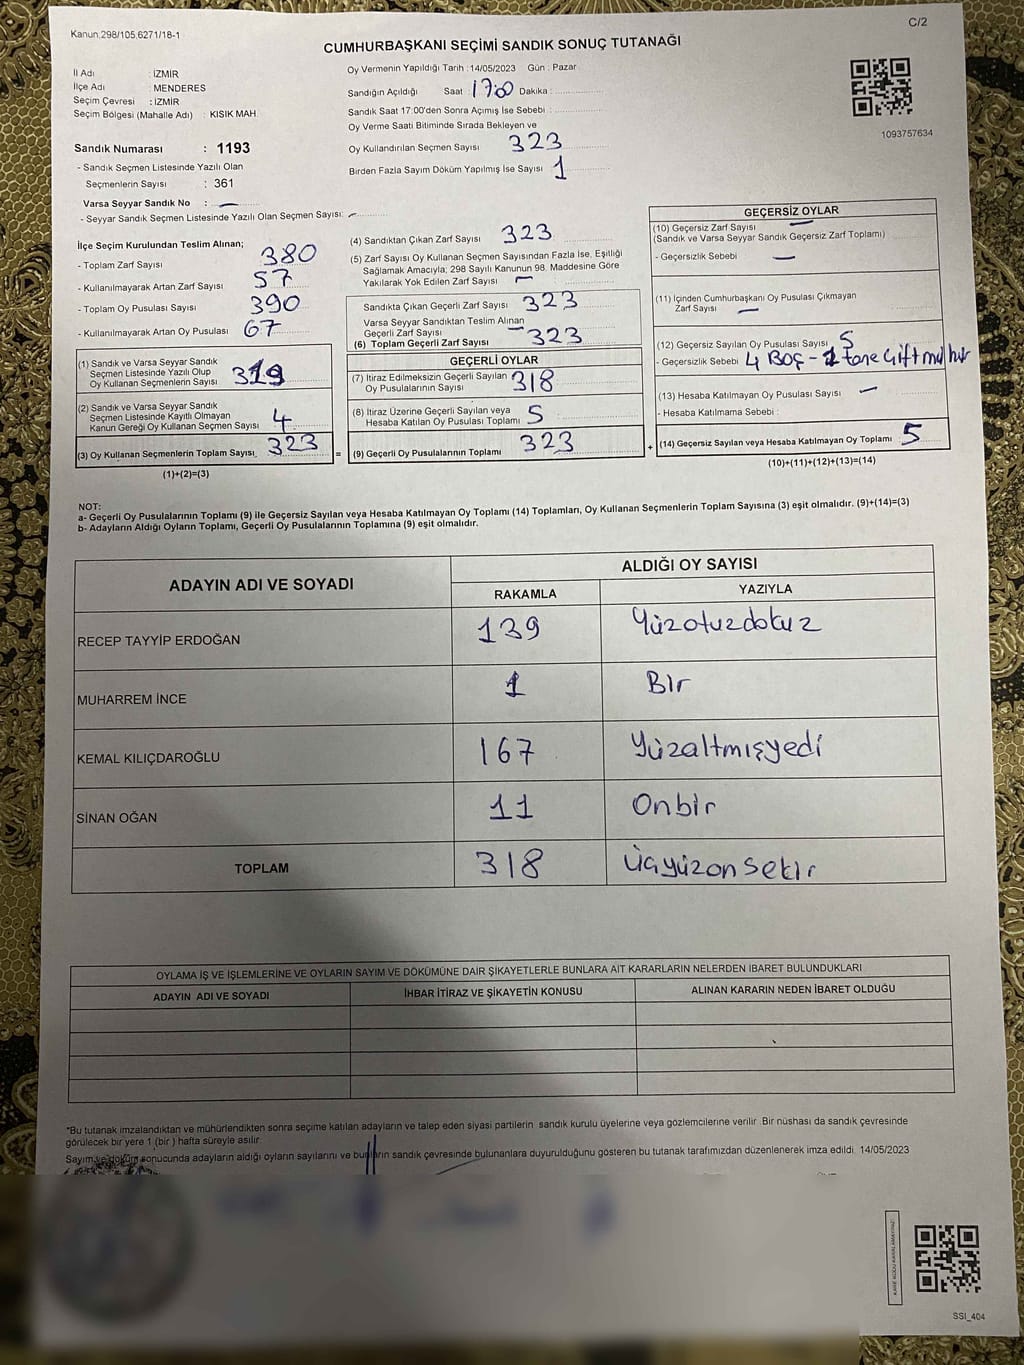 Kanun.298/105,6271/18-1
C/2
CUMHURBAŞKANI SEÇİMİ SANDIK SONUÇ TUTANAĞI
İl Adı : İZMİR
İlçe Adı : MENDERES
Seçim Çevresi : İZMİR
Seçim Bölgesi (Mahalle Adı) : KISIK MAH
Sandık Numarası : 1193
- Sandık Seçmen Listesinde Yazılı Olan
Seçmenlerin Sayısı : 361
Varsa Seyyar Sandık No : –
- Seyyar Sandık Seçmen Listesinde Yazılı Olan Seçmen Sayısı: –
Oy Vermenin Yapıldığı Tarih :14/05/2023 Gün : Pazar
Sandığın Açıldığı Saat 17:00 Dakika :
Sandık Saat 17:00'den Sonra Açımış İse Sebebi :
Oy Verme Saati Bitiminde Sırada Bekleyen ve
Oy Kullandırılan Seçmen Sayısı 323
Birden Fazla Sayım Döküm Yapılmış İse Sayısı 1
1093757634
İlçe Seçim Kurulundan Teslim Alınan;
- Toplam Zarf Sayısı 380
- Kullanılmayarak Artan Zarf Sayısı 57
- Toplam Oy Pusulası Sayısı 390
- Kullanılmayarak Artan Oy Pusulası 67
(1) Sandık ve Varsa Seyyar Sandık
Seçmen Listesinde Yazılı Olup
Oy Kullanan Seçmenlerin Sayısı 319
(2) Sandık ve Varsa Seyyar Sandık
Seçmen Listesinde Kayıtlı Olmayan
Kanun Gereği Oy Kullanan Seçmen Sayısı 4
(3) Oy Kullanan Seçmenlerin Toplam Sayısı 323
=
(1)+(2)=(3)
(4) Sandıktan Çıkan Zarf Sayısı 323
(5) Zarf Sayısı Oy Kullanan Seçmen Sayısından Fazla İse, Eşitliği
Sağlamak Amacıyla; 298 Sayılı Kanunun 98. Maddesine Göre
Yakılarak Yok Edilen Zarf Sayısı –
Sandıkta Çıkan Geçerli Zarf Sayısı 323
Varsa Seyyar Sandıktan Teslim Alınan
Geçerli Zarf Sayısı –
(6) Toplam Geçerli Zarf Sayısı 323
GEÇERLİ OYLAR
(7) İtiraz Edilmeksizin Geçerli Sayılan
Oy Pusulalarının Sayısı 318
(8) İtiraz Üzerine Geçerli Sayılan veya
Hesaba Katılan Oy Pusulası Toplamı 5
(9) Geçerli Oy Pusulalarının Toplamı 323
+
GEÇERSİZ OYLAR
(10) Geçersiz Zarf Sayısı –
(Sandık ve Varsa Seyyar Sandık Geçersiz Zarf Toplamı)
- Geçersizlik Sebebi –
(11) İçinden Cumhurbaşkanı Oy Pusulası Çıkmayan
Zarf Sayısı –
(12) Geçersiz Sayılan Oy Pusulası Sayısı 5
- Geçersizlik Sebebi 4 Boş - 1 tane Çift mühür
(13) Hesaba Katılmayan Oy Pusulası Sayısı –
- Hesaba Katılmama Sebebi :
(14) Geçersiz Sayılan veya Hesaba Katılmayan Oy Toplamı 5
(10)+(11)+(12)+(13)=(14)
NOT:
a- Geçerli Oy Pusulalarının Toplamı (9) ile Geçersiz Sayılan veya Hesaba Katılmayan Oy Toplamı (14) Toplamları, Oy Kullanan Seçmenlerin Toplam Sayısına (3) eşit olmalıdır. (9)+(14)=(3)
b- Adayların Aldığı Oyların Toplamı, Geçerli Oy Pusulalarının Toplamına (9) eşit olmalıdır.
ADAYIN ADI VE SOYADI
ALDIĞI OY SAYISI
RAKAMLA YAZIYLA
RECEP TAYYİP ERDOĞAN 139 Yüzotuzdokuz
MUHARREM İNCE 1 Bir
KEMAL KILIÇDAROĞLU 167 Yüzaltmışyedi
SİNAN OĞAN 11 Onbir
TOPLAM 318 Üçyüzonsekiz
OYLAMA İŞ VE İŞLEMLERİNE VE OYLARIN SAYIM VE DÖKÜMÜNE DAİR ŞİKAYETLERLE BUNLARA AİT KARARLARIN NELERDEN İBARET BULUNDUKLARI
ADAYIN ADI VE SOYADI İHBAR İTİRAZ VE ŞİKAYETİN KONUSU ALINAN KARARIN NEDEN İBARET OLDUĞU
*Bu tutanak imzalandıktan ve mühürlendikten sonra seçime katılan adayların ve talep eden siyasi partilerin sandık kurulu üyelerine veya gözlemcilerine verilir. Bir nüshası da sandık çevresinde
görülecek bir yere 1 (bir ) hafta süreyle asılır.
Sayım ve döküm sonucunda adayların aldığı oyların sayılarını ve bunların sandık çevresinde bulunanlara duyurulduğunu gösteren bu tutanak tarafımızdan düzenlenerek imza edildi. 14/05/2023
KARE KODU KARALAMAYINIZ!
SSI_404